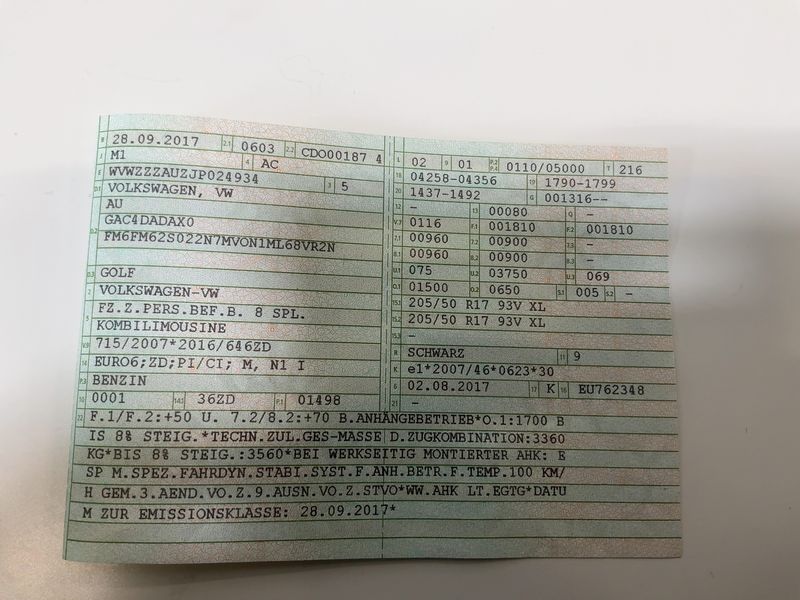 28.09.2017 2.1 0603 2.2 CDO00187 4
M1 4 AC
WVWZZZAUZJP024934 3 5
VOLKSWAGEN, VW
AU
GAC4DADAX0
FM6FM62S022N7MVON1ML68VR2N
GOLF
VOLKSWAGEN-VW
FZ.Z.PERS.BEF.B. 8 SPL.
KOMBILIMOUSINE
715/2007*2016/646ZD
EURO6;ZD;PI/CI; M, N1 I
BENZIN
10 0001 14.1 36ZD P.1 01498
L 02 9 01 P.2 P.4 0110/05000 T 216
18 04258-04356 19 1790-1799
20 1437-1492 G 001316--
12 - 13 00080 Q -
V.7 0116 F.1 001810 F.2 001810
7.1 00960 7.2 00900 7.3 -
8.1 00960 8.2 00900 8.3 -
U.1 075 U.2 03750 U.3 069
O.1 01500 O.2 0650 S.1 005 S.2 -
15.1 205/50 R17 93V XL
15.2 205/50 R17 93V XL
15.3 -
R SCHWARZ 11 9
K e1*2007/46*0623*30
6 02.08.2017 17 K 16 EU762348
21 -
22 F.1/F.2:+50 U. 7.2/8.2:+70 B.ANHÄNGEBETRIEB*O.1:1700 B
IS 8% STEIG.*TECHN.ZUL.GES-MASSE D.ZUGKOMBINATION:3360
KG*BIS 8% STEIG.:3560*BEI WERKSEITIG MONTIERTER AHK: E
SP M.SPEZ.FAHRDYN.STABI.SYST.F.ANH.BETR.F.TEMP.100 KM/
H GEM.3.AEND.VO.Z.9.AUSN.VO.Z.STVO*WW.AHK LT.EGTG*DATU
M ZUR EMISSIONSKLASSE: 28.09.2017*